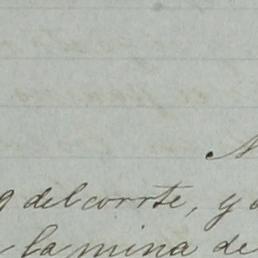 del corrte, y
la mina de